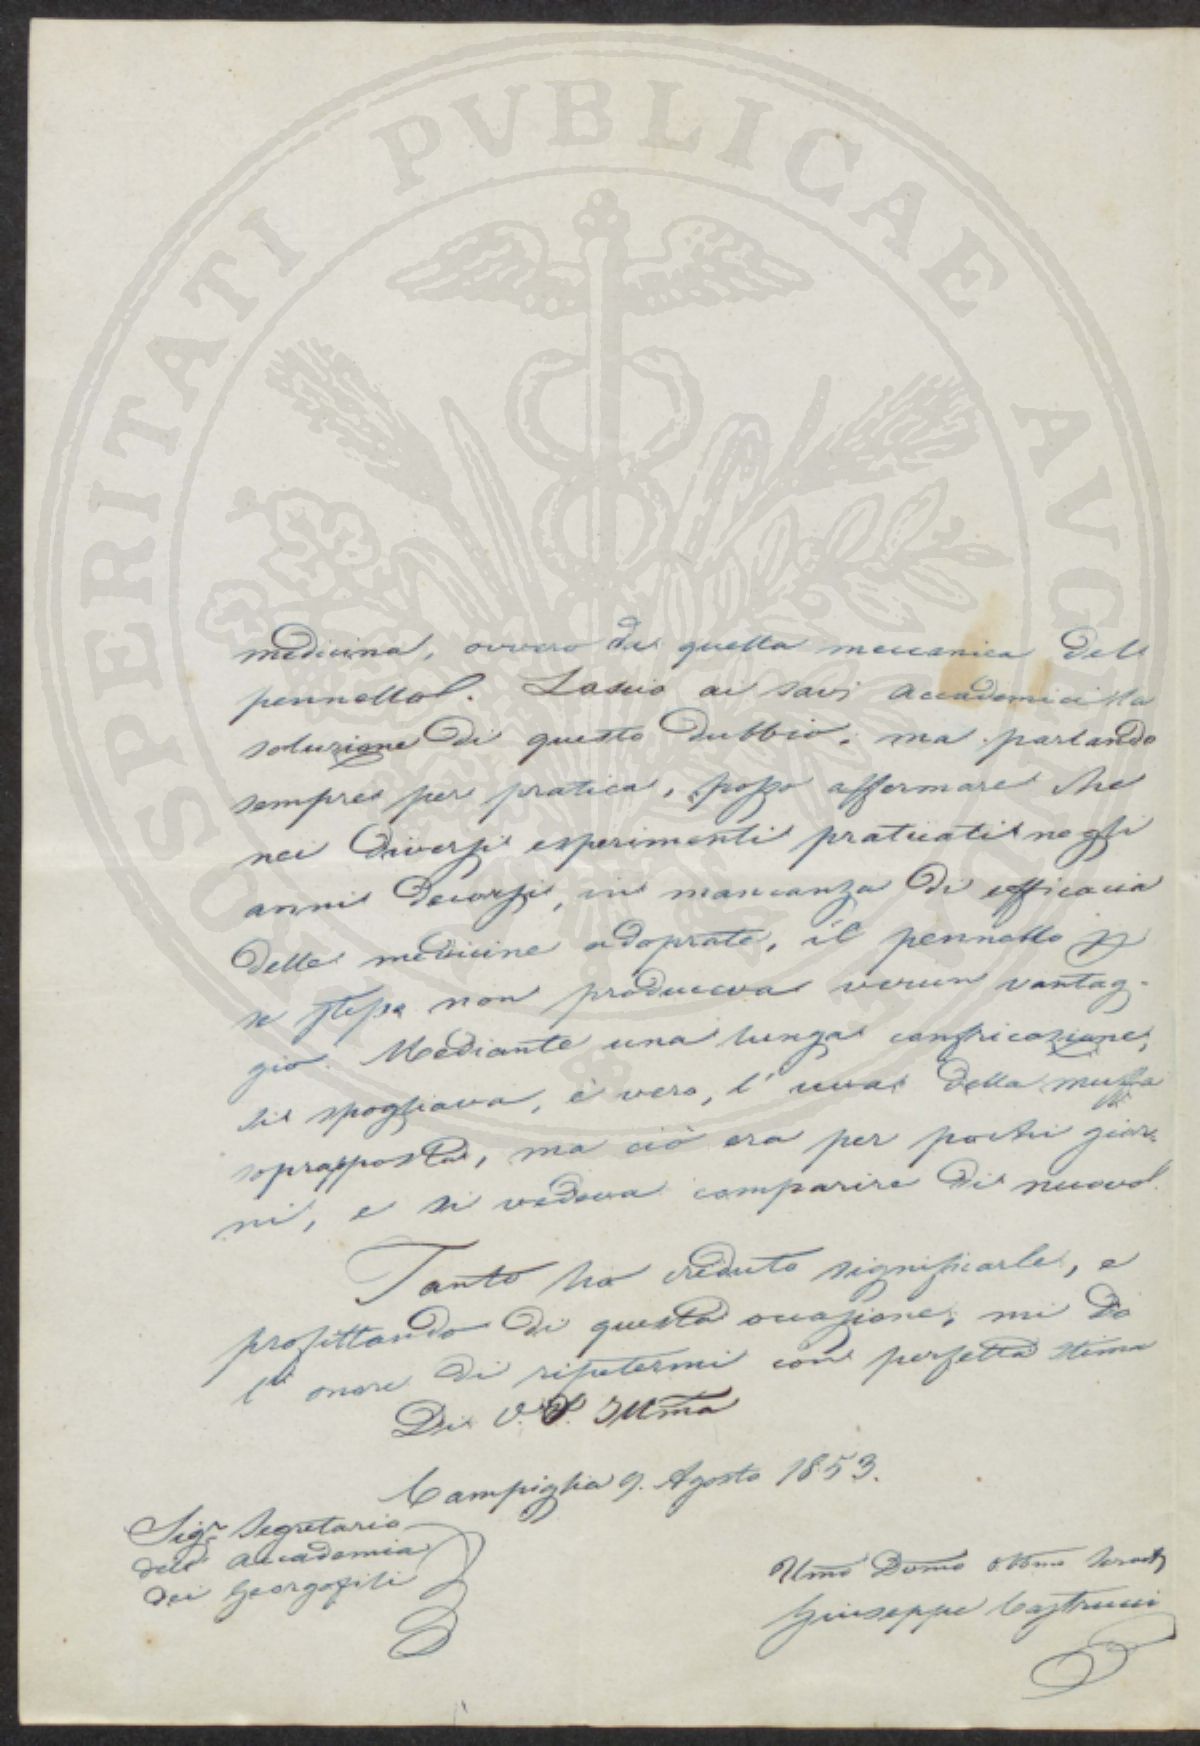 PROSPERITATI PVBLICAE AVGENDAE
medicina, ovvero da quella meccanica del
pennello. Lascio ai savj Accademici la
soluzione di questo dubbio, ma parlando
sempre per pratica, posso affermare che
nei diversi esperimenti praticati negli
anni decorsi, in mancanza di efficacia
delle medicine adoprate, il pennello p
se stesso non produceva verun vantag-
gio. Mediante una lunga confricazione,
si spogliava, è vero, l'uva della muffa
soprapposta, ma ciò era per pochi gior-
ni, e si vedeva comparire di nuovo.
Tanto ho creduto significarle, e
profittando di questa occasione, mi do
l'onore di ripetermi con perfetta stima
Di V. S. Illma
Campiglia 9. Agosto 1853.
Sigr Segretario
dell'Accademia
dei Georgofili
Umo Devmo Obbmo Servit
Giuseppe Castrucci